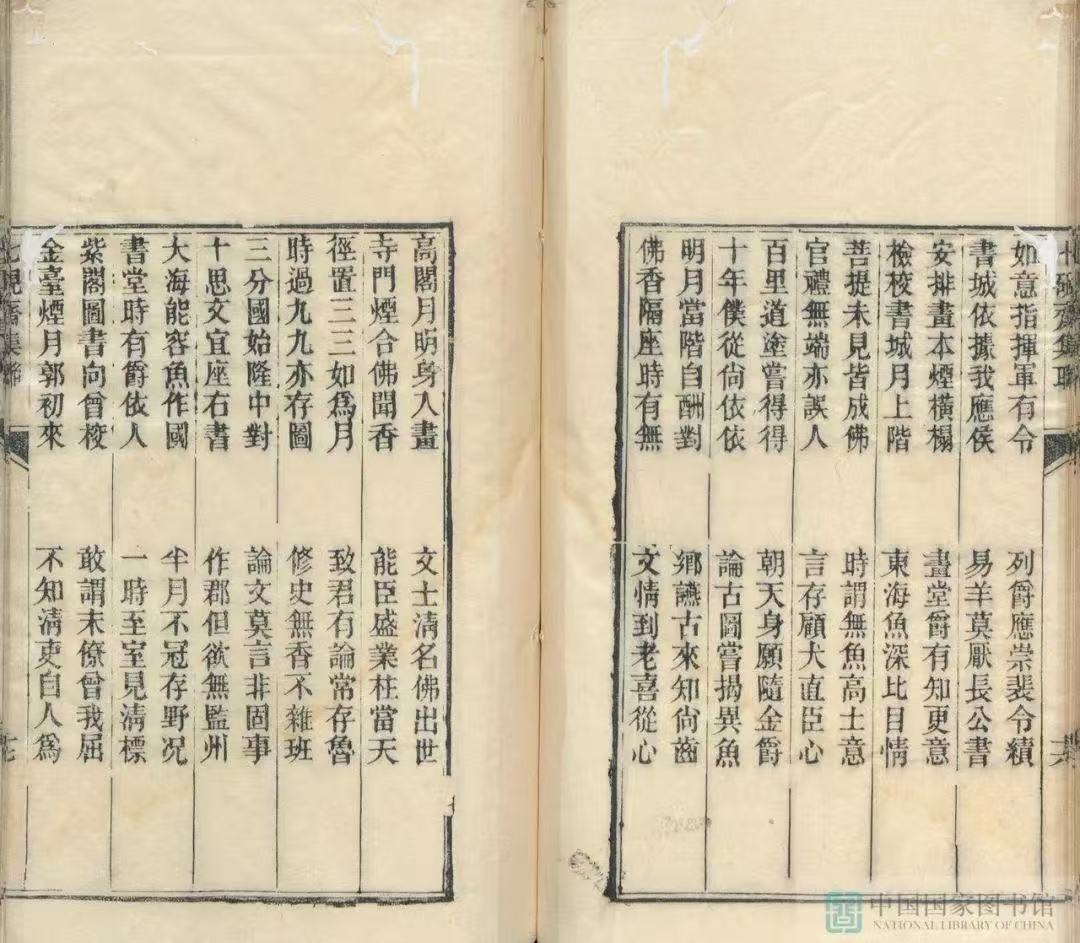 如意指揮軍有令 列爵應崇裴令績
書城依據我應侯 易羊莫厭長公書
安排畫本煙橫榻 畫堂爵有知更意
檢校書城月上階 東海魚深比目情
菩提未見皆成佛 時謂無魚高士意
官禮無端亦誤人 言存顧犬直臣心
百里道塗嘗得得 朝天身願隨金爵
十年僕從尙依依 論古圖嘗揭異魚
明月當階自酬對 鄉讌古來知尙齒
佛香隔座時有無 文情到老喜從心
高閣月明身入畫 文士淸名佛出世
寺門煙合佛聞香 能臣盛業柱當天
徑置三三如爲月 致君有論常存魯
時過九九亦存圖 修史無香不雜班
三分國始隆中對 論文莫言非固事
十思文宜座右書 作郡但欲無監州
大海能容魚作國 半月不冠存野况
書堂時有爵依人 一時至室見淸標
紫閣圖書向曾校 敢謂末僚曾我屈
金臺煙月郭初來 不知淸吏自人爲
中国国家图书馆
NATIONAL LIBRARY OF CHINA